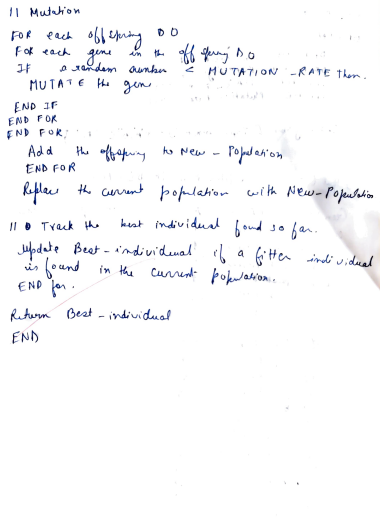 // Mutation
FOR each offspring DO
FOR each gene in the offspring DO
IF a random number < MUTATION -RATE then.
MUTATE the gene
END IF
END FOR
END FOR.
Add the offspring to New - Population
END FOR
Replace the current population with New-Population
// Track the best individual found so far.
Update Best-individual if a fitter individual
is found in the current population.
END for.
Return Best-individual
END